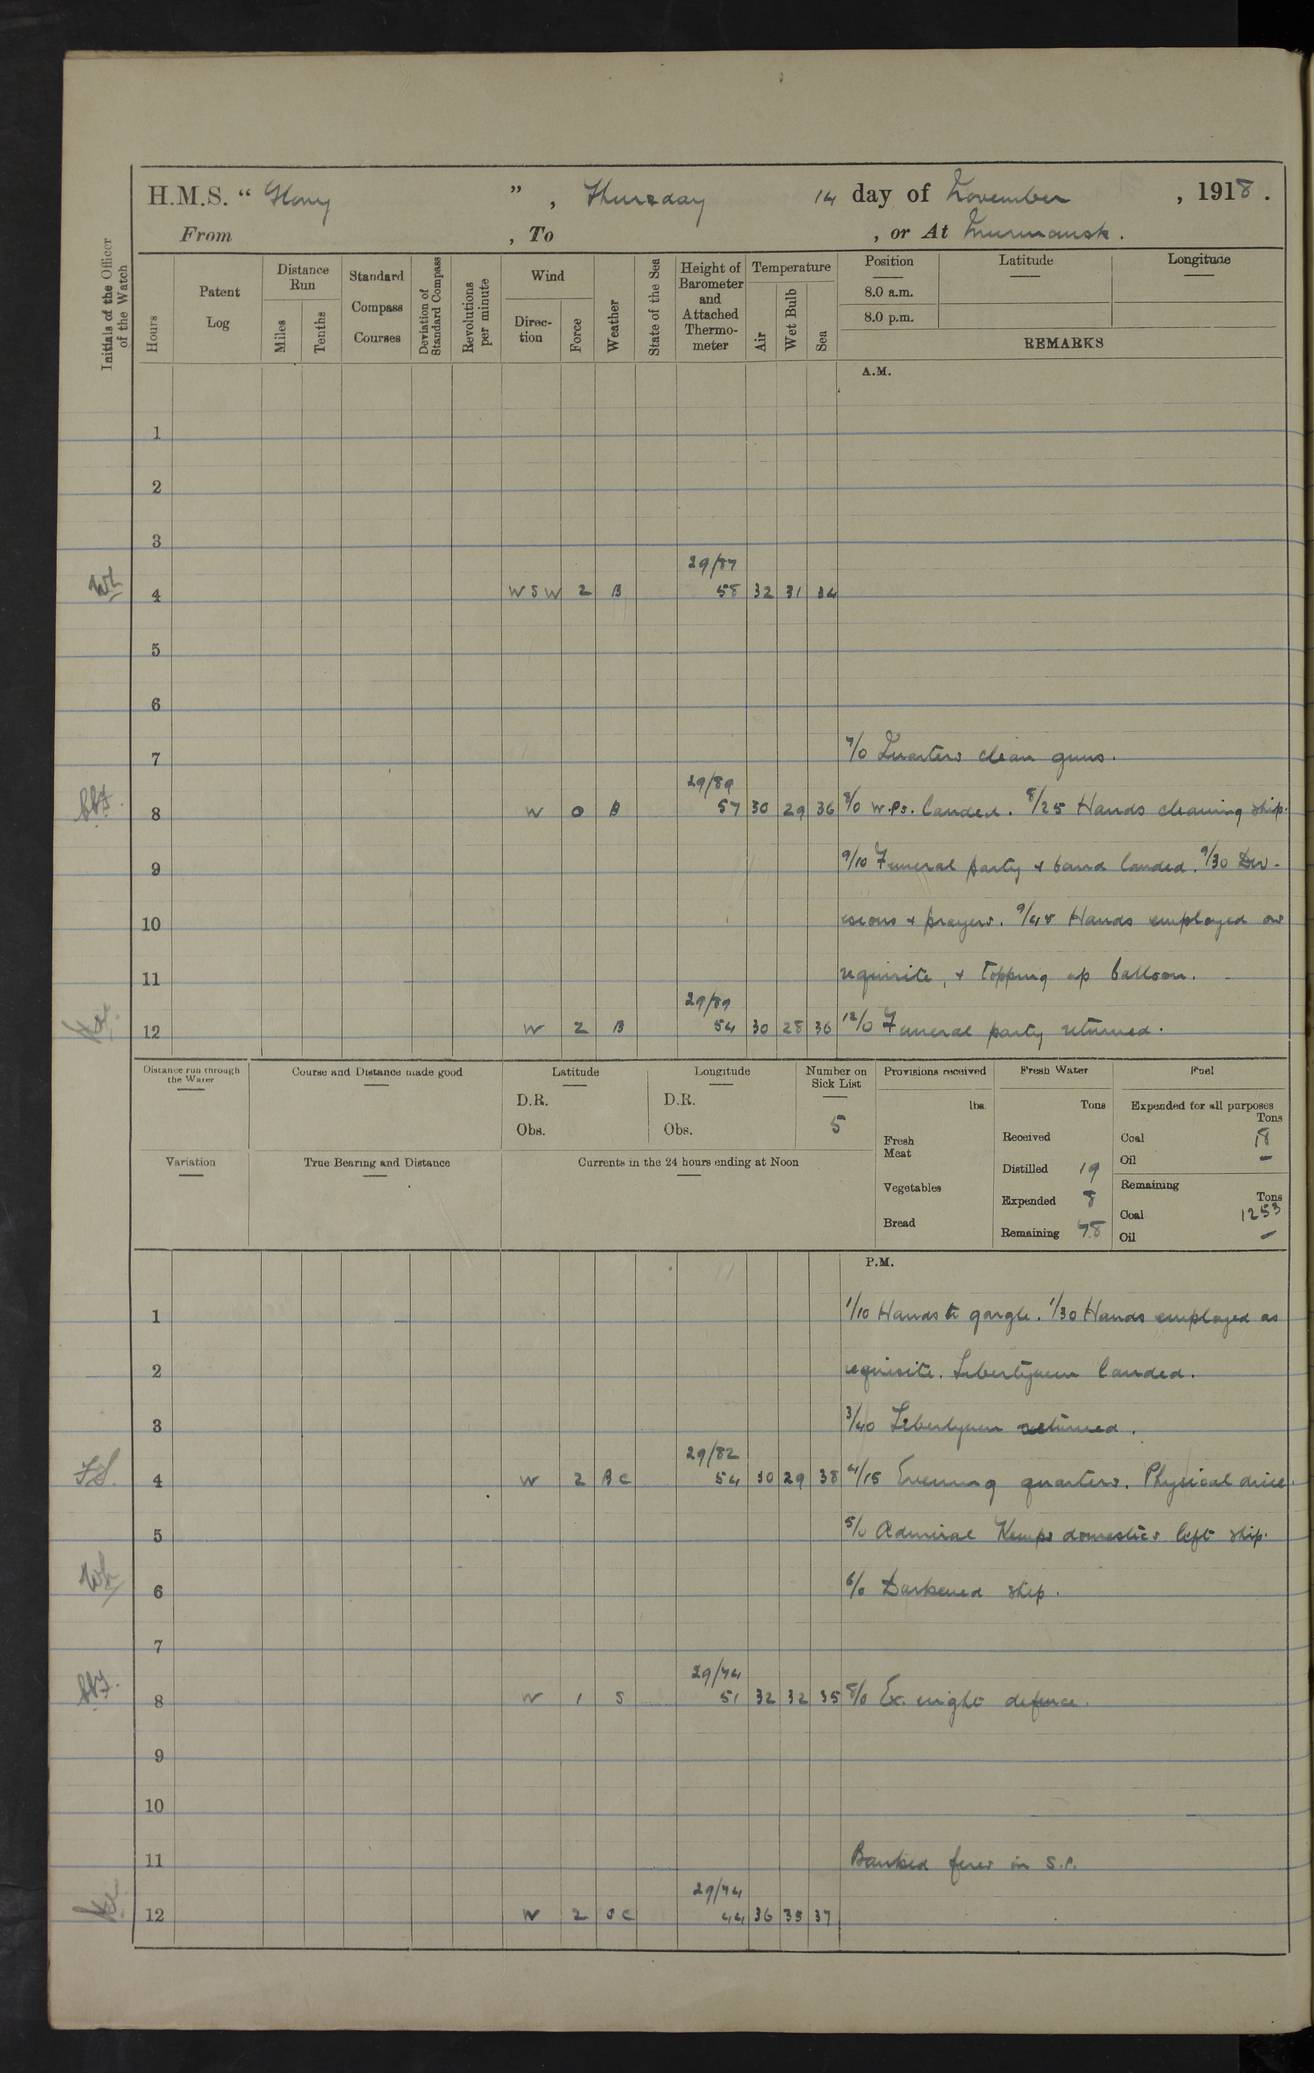 H.M.S. " Glory ", Thursday 14 day of November, 1918.
From , To , or At Murmansk.
Initials of the Officer of the Watch
Hours
Patent Log
Distance Run
Miles
Tenths
Standard Compass Courses
Deviation of Standard Compass
Revolutions per minute
Wind
Direction
Force
Weather
State of the Sea
Height of Barometer and Attached Thermometer
Temperature
Air
Wet Bulb
Sea
Position
8.0 a.m.
8.0 p.m.
Latitude
Longitude
REMARKS
A.M.
1
2
3
29/87
4 WSW 2 B 58 32 31 34
5
6
7 7/0 Quarters clean guns.
29/89
8 W 0 B 57 30 29 36 8/0 W.Ps. landed. 8/25 Hands cleaning ship.
9 9/10 Funeral party & band landed. 9/30 Div-
10 isions & prayers. 9/45 Hands employed as
11 requisite, & topping up balloon.
29/89
12 W 2 B 54 30 28 36 12/0 Funeral party returned.
Distance run through the Water
Course and Distance made good
Latitude
D.R.
Obs.
Longitude
D.R.
Obs.
Number on Sick List
5
Provisions received
lbs.
Fresh Meat
Vegetables
Bread
Fresh Water
Tons
Received
Distilled 19
Expended 8
Remaining 78
Fuel
Expended for all purposes
Tons
Coal 18
Oil —
Remaining
Tons
Coal 1253
Oil —
Variation
True Bearing and Distance
Currents in the 24 hours ending at Noon
P.M.
1 1/10 Hands to gargle. 1/30 Hands employed as
2 requisite. Libertymen landed.
3 3/40 Libertymen returned.
29/82
4 W 2 BC 54 30 29 38 4/15 Evening quarters. Physical drill
5 5/0 Admiral Kemps domestics left ship.
6 6/0 Darkened ship.
7
29/74
8 W 1 S 51 32 32 35 8/0 Ex. night defence.
9
10
11 Banked fires in S.P.
29/74
12 W 2 OC 44 36 35 37